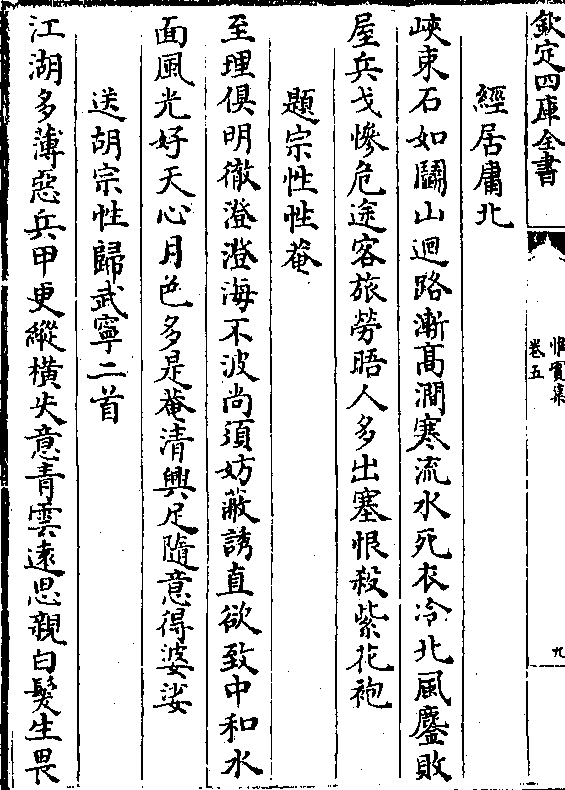 欽定四庫全書
惟實集
卷五
九
經居庸北
峽束石如鬬山迴路漸髙澗寒流水死衣冷北風鏖敗
屋兵戈慘危途客旅勞晤人多出塞恨殺紫花袍
題宗性性菴
至理俱明徹澄澄海不波尚須妨蔽誘直欲致中和水
面風光好天心月色多是菴清興足隨意得婆娑
送胡宗性歸武寧二首
江湖多薄惡兵甲更縱橫失意青雲遠思親白髮生畏